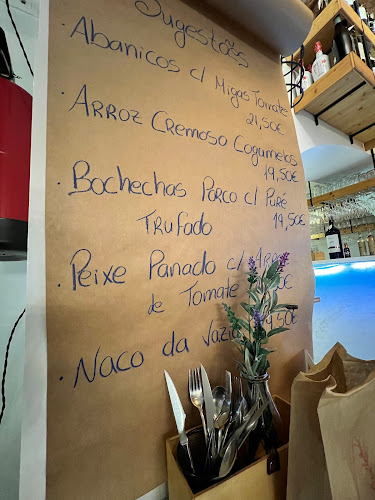 Sugestões
. Abanicos c/ Migas Tomate
21,50€
. Arroz Cremoso Cogumelos
19,50€
. Bochechas Porco c/ Puré
Trufado 19,50€
. Peixe Panado c/
de Tomate
. Naco da Vazia